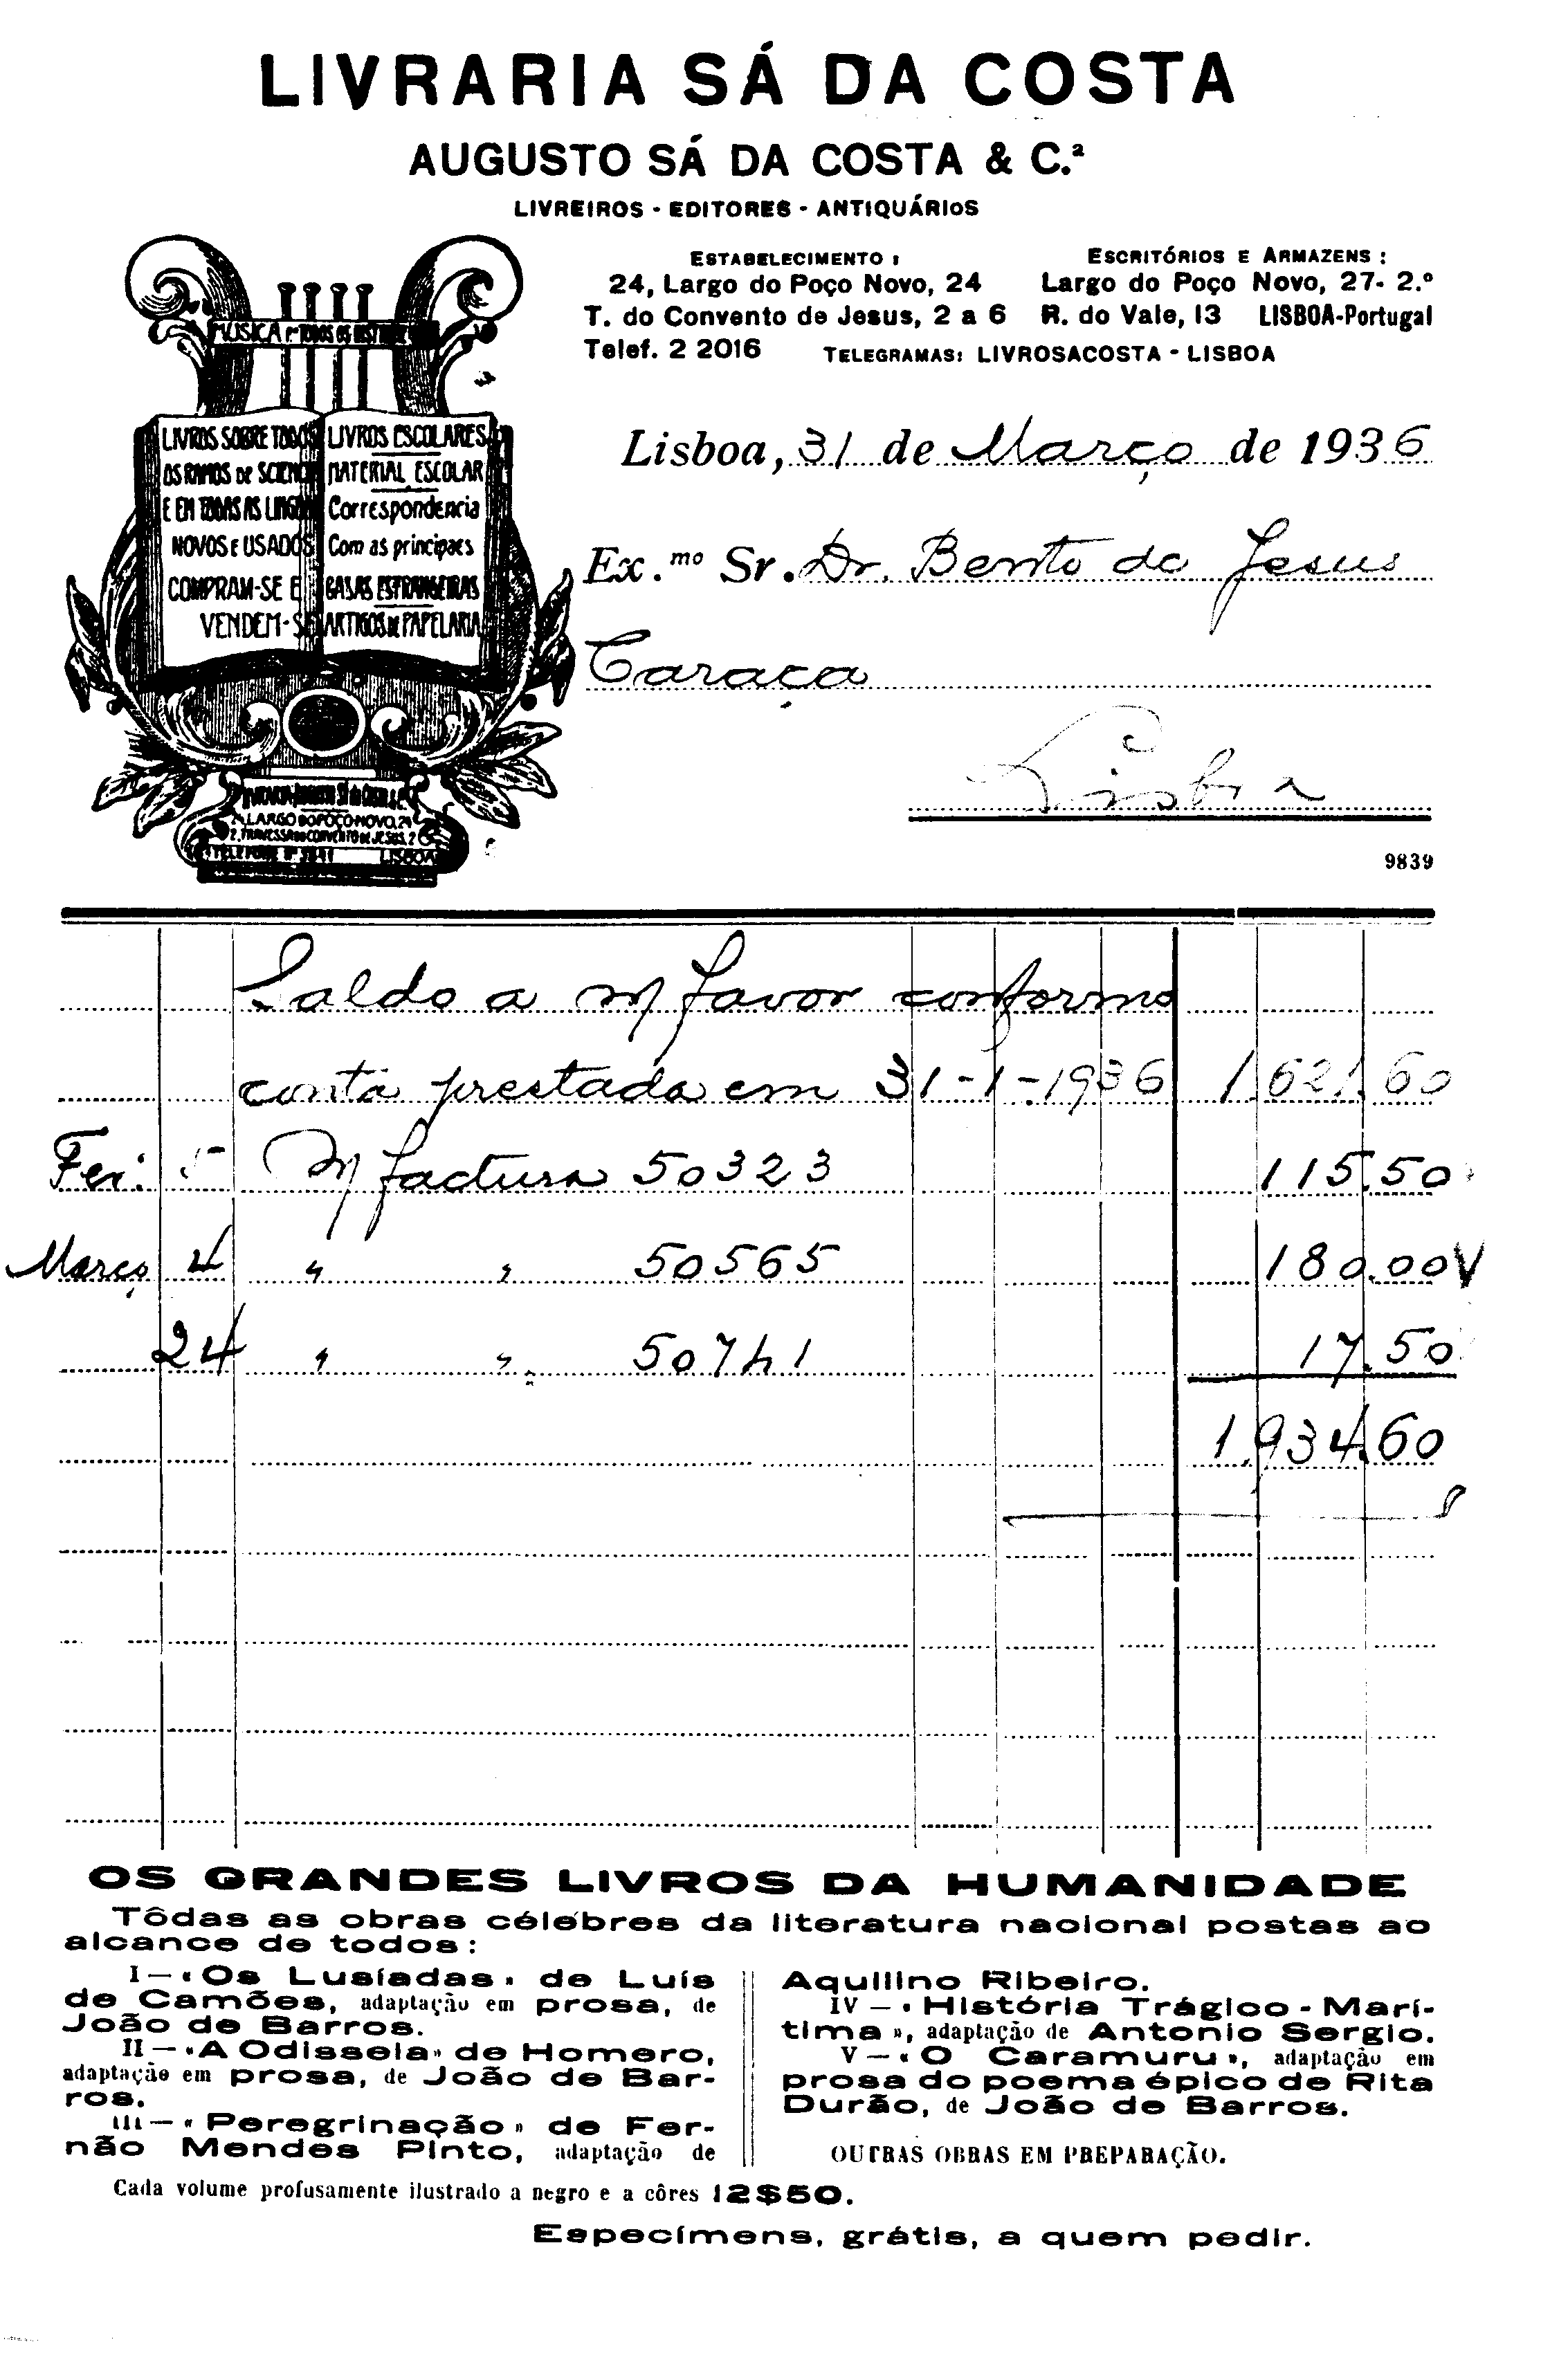 LIVRARIA SÁ DA COSTA
AUGUSTO SÁ DA COSTA & C.ª
LIVREIROS - EDITORES - ANTIQUÁRIOS
ESTABELECIMENTO :
24, Largo do Poço Novo, 24
T. do Convento de Jesus, 2 a 6
Telef. 2 2016
ESCRITÓRIOS E ARMAZENS :
Largo do Poço Novo, 27- 2.º
R. do Vale, 13 LISBOA-Portugal
TELEGRAMAS: LIVROSACOSTA - LISBOA
MUSICA
LIVROS SOBRE TODOS
OS RAMOS DE SCIENCIA
E EM TODAS AS LINGUAS
NOVOS E USADOS
COMPRAM-SE E
VENDEM-SE
LIVROS ESCOLARES
MATERIAL ESCOLAR
Correspondencia
Com as principaes
CASAS ESTRANGEIRAS
ARTIGOS DE PAPELARIA
LARGO DO POÇO NOVO, 24
2, TRAVESSA DO CONVENTO DE JESUS, 2
LISBOA
Lisboa, 31 de Março de 1936
Ex.mo Sr. Dr. Bento de Jesus
Caraça
Lisboa
9839
Saldo a m/ favor conforme
conta prestada em 31-1-1936 1.621.60
Fev: 5 M/ factura 50323 115.50
Março 4 " " 50565 180.00 V
24 " " 50741 17.50
1.934.60
OS GRANDES LIVROS DA HUMANIDADE
Tôdas as obras célebres da literatura nacional postas ao
alcance de todos:
I — «Os Lusíadas» de Luís
de Camões, adaptação em prosa, de
João de Barros.
II — «A Odisseia» de Homero,
adaptação em prosa, de João de Bar-
ros.
III — «Peregrinação» de Fer-
não Mendes Pinto, adaptação de
Aquilino Ribeiro.
IV — «História Trágico - Marí-
tima», adaptação de Antonio Sergio.
V — «O Caramuru», adaptação em
prosa do poema épico de Rita
Durão, de João de Barros.
OUTRAS OBRAS EM PREPARAÇÃO.
Cada volume profusamente ilustrado a negro e a côres 12$50.
Especímens, grátis, a quem pedir.